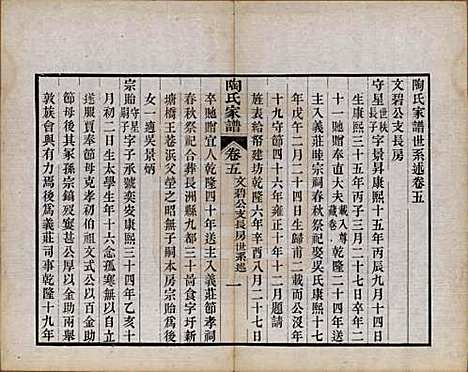 陶氏家譜世系述卷五
文碧公支長房
守星 世秋長子 字景昇康熙十五年丙辰九月十四日
生康熙三十五年丙子三月二十七日
以三世贈奉直大夫 載入尊藏卷 乾隆二十四年送
主入義莊睦宗祠春秋祭祀娶吳氏康熙十七
年戊午二月二十四日生歸甫二載而公沒年
十九守節四十六年雍正十年十二月題請
旌表給帑建坊乾隆六年辛酉八月二十七日
陶氏家譜
卷五
文碧公支長房世系述
一
卒以三世贈宜人乾隆二十四年送主入義莊節孝祠
春秋祭祀合葬歐洲都三十啚食字圩新
塘橋王巷浜父塋之昭無子嗣本房宗貽為後
女一適吳景炳
宗貽 守星嗣子 字子承號奕安康熙三十四年乙亥十
月初二日生少孤年十六念孤寒無以自立
遂服賈奉節母克孝初伯祖文式公以百金助
節母後其孫宗鎬寖甚公厚以金助兩舉
敦族會嚮有尤為義莊司事乾隆十九年